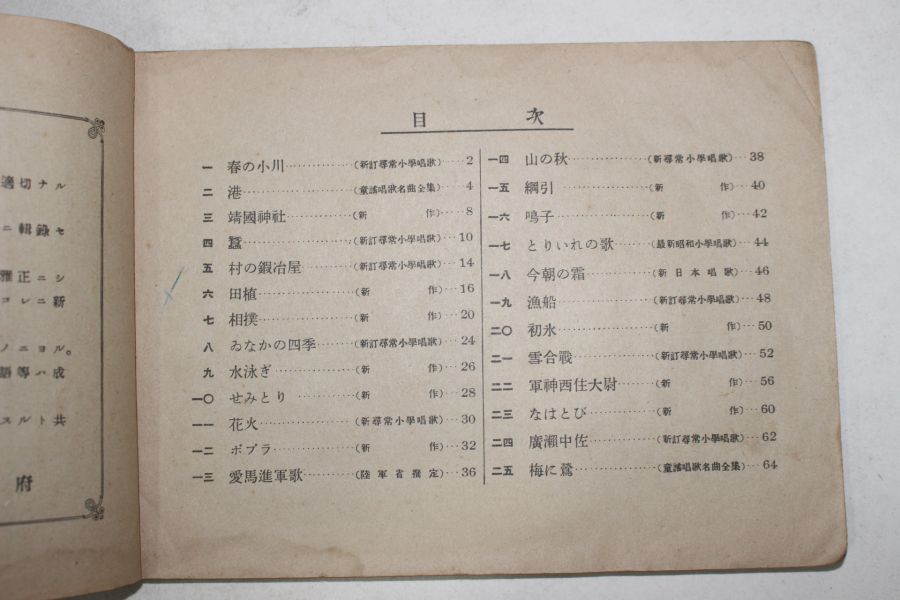 適切ナル
ニ輯錄セ
雅正ニシ
コレニ新
ノニヨル。
語等ハ成
スルト共
府
目次
一 春の小川……………(新訂尋常小學唱歌)…2
二 港……………(童謠唱歌名曲全集)…4
三 靖國神社……………(新作)…8
四 蠶……………(新訂尋常小學唱歌)…10
五 村の鍛冶屋……………(新訂尋常小學唱歌)…14
六 田植……………(新作)…16
七 相撲……………(新作)…20
八 ゐなかの四季……………(新訂尋常小學唱歌)…24
九 水泳ぎ……………(新作)…26
一〇 せみとり……………(新作)…28
一一 花火……………(新尋常小學唱歌)…30
一二 ポプラ……………(新作)…32
一三 愛馬進軍歌……………(陸軍省撰定)…36
一四 山の秋……………(新尋常小學唱歌)…38
一五 綱引……………(新作)…40
一六 鳴子……………(新作)…42
一七 とりいれの歌……………(最新昭和小學唱歌)…44
一八 今朝の霜……………(新日本唱歌)…46
一九 漁船……………(新訂尋常小學唱歌)…48
二〇 初氷……………(新作)…50
二一 雪合戰……………(新訂尋常小學唱歌)…52
二二 軍神西住大尉……………(新作)…56
二三 なはとび……………(新作)…60
二四 廣瀨中佐……………(新訂尋常小學唱歌)…62
二五 梅に鶯……………(童謠唱歌名曲全集)…64